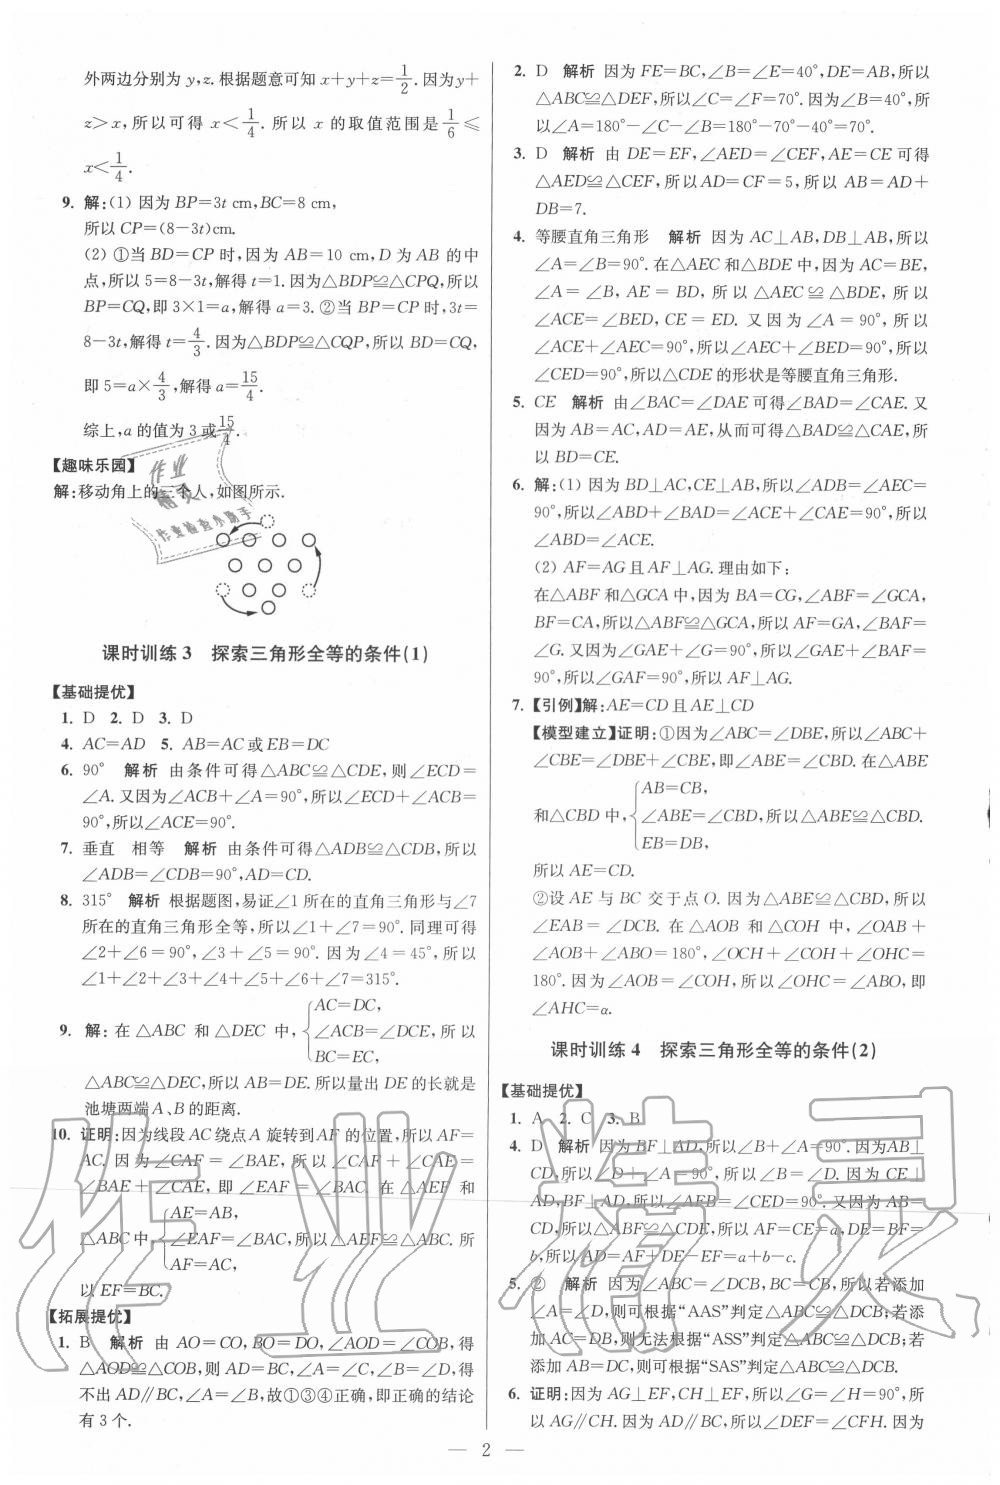 外两边分别为 y,z. 根据题意可知 x+y+z=1/2. 因为 y+
z>x,所以可得 x<1/4. 所以 x 的取值范围是 1/6≤
x<1/4.
9. 解:(1) 因为 BP=3t cm,BC=8 cm,
所以 CP=(8-3t)cm.
(2) ①当 BD=CP 时,因为 AB=10 cm,D 为 AB 的中
点,所以 5=8-3t,解得 t=1. 因为△BDP≌△CPQ,所以
BP=CQ,即 3×1=a,解得 a=3. ②当 BP=CP 时,3t=
8-3t,解得 t=4/3. 因为△BDP≌△CQP,所以 BD=CQ,
即 5=a×4/3,解得 a=15/4.
综上,a 的值为 3 或 15/4.
【趣味乐园】
解:移动角上的三个人,如图所示.
课时训练 3 探索三角形全等的条件(1)
【基础提优】
1. D 2. D 3. D
4. AC=AD 5. AB=AC 或 EB=DC
6. 90° 解析 由条件可得△ABC≌△CDE,则∠ECD=
∠A. 又因为∠ACB+∠A=90°,所以∠ECD+∠ACB=
90°,所以∠ACE=90°.
7. 垂直 相等 解析 由条件可得△ADB≌△CDB,所以
∠ADB=∠CDB=90°,AD=CD.
8. 315° 解析 根据题图,易证∠1 所在的直角三角形与∠7
所在的直角三角形全等,所以∠1+∠7=90°. 同理可得
∠2+∠6=90°,∠3+∠5=90°. 因为∠4=45°,所以
∠1+∠2+∠3+∠4+∠5+∠6+∠7=315°.
AC=DC,
9. 解:在△ABC 和△DEC 中, ∠ACB=∠DCE,所以
BC=EC,
△ABC≌△DEC,所以 AB=DE. 所以量出 DE 的长就是
池塘两端 A、B 的距离.
10. 证明:因为线段 AC 绕点 A 旋转到 AF 的位置,所以 AF=
AC. 因为∠CAF=∠BAE,所以∠CAF+∠CAE=
∠BAE+∠CAE,即∠EAF=∠BAC. 在△AEF 和
AE=AB,
△ABC 中, ∠EAF=∠BAC,所以△AEF≌△ABC. 所
AF=AC,
以 EF=BC.
【拓展提优】
1. B 解析 由 AO=CO,BO=DO,∠AOD=∠COB,得
△AOD≌△COB,则 AD=BC,∠A=∠C,∠B=∠D,得
不出 AD∥BC,∠A=∠B,故①③④正确,即正确的结论
有 3 个.
2. D 解析 因为 FE=BC,∠B=∠E=40°,DE=AB,所以
△ABC≌△DEF,所以∠C=∠F=70°. 因为∠B=40°,所
以∠A=180°-∠C-∠B=180°-70°-40°=70°.
3. D 解析 由 DE=EF,∠AED=∠CEF,AE=CE 可得
△AED≌△CEF,所以 AD=CF=5,所以 AB=AD+
DB=7.
4. 等腰直角三角形 解析 因为 AC⊥AB,DB⊥AB,所以
∠A=∠B=90°. 在△AEC 和△BDE 中,因为 AC=BE,
∠A=∠B,AE=BD,所以△AEC≌△BDE,所以
∠ACE=∠BED,CE=ED. 又因为∠A=90°,所以
∠ACE+∠AEC=90°,所以∠AEC+∠BED=90°,所以
∠CED=90°,所以△CDE 的形状是等腰直角三角形.
5. CE 解析 由∠BAC=∠DAE 可得∠BAD=∠CAE. 又
因为 AB=AC,AD=AE,从而可得△BAD≌△CAE,所
以 BD=CE.
6. 解:(1) 因为 BD⊥AC,CE⊥AB,所以∠ADB=∠AEC=
90°,所以∠ABD+∠BAD=∠ACE+∠CAE=90°,所以
∠ABD=∠ACE.
(2) AF=AG 且 AF⊥AG. 理由如下:
在△ABF 和△GCA 中,因为 BA=CG,∠ABF=∠GCA,
BF=CA,所以△ABF≌△GCA,所以 AF=GA,∠BAF=
∠G. 又因为∠GAE+∠G=90°,所以∠GAE+∠BAF=
90°,所以∠GAF=90°,所以 AF⊥AG.
7. 【引例】解:AE=CD 且 AE⊥CD
【模型建立】证明:①因为∠ABC=∠DBE,所以∠ABC+
∠CBE=∠DBE+∠CBE,即∠ABE=∠CBD. 在△ABE
AB=CB,
和△CBD 中, ∠ABE=∠CBD,所以△ABE≌△CBD.
EB=DB,
所以 AE=CD.
②设 AE 与 BC 交于点 O. 因为△ABE≌△CBD,所以
∠EAB=∠DCB. 在△AOB 和△COH 中,∠OAB+
∠AOB+∠ABO=180°,∠OCH+∠COH+∠OHC=
180°. 因为∠AOB=∠COH,所以∠OHC=∠ABO,即
∠AHC=α.
课时训练 4 探索三角形全等的条件(2)
【基础提优】
1. A 2. C 3. B
4. D 解析 因为 BF⊥AD,所以∠B+∠A=90°. 因为 AB⊥
CD,所以∠D+∠A=90°,所以∠B=∠D. 因为 CE⊥
AD,BF⊥AD,所以∠AFB=∠CED=90°. 又因为 AB=
CD,所以△ABF≌△CDE,所以 AF=CE=a,DE=BF=
b,所以 AD=AF+DE-EF=a+b-c.
5. ② 解析 因为∠ABC=∠DCB,BC=CB,所以若添加
∠A=∠D,则可根据“AAS”判定△ABC≌△DCB;若添
加 AC=DB,则无法根据“ASS”判定△ABC≌△DCB;若
添加 AB=DC,则可根据“SAS”判定△ABC≌△DCB.
6. 证明:因为 AG⊥EF,CH⊥EF,所以∠G=∠H=90°,所
以 AG∥CH. 因为 AD∥BC,所以∠DEF=∠CFH. 因为
— 2 —
作业
精灵
作业检查小助手
作业精灵